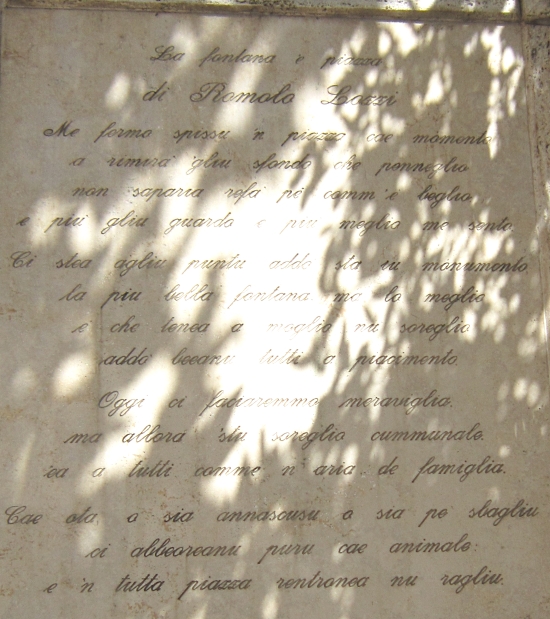 La fontana e piazza
di Romolo Lozzi
Me fermo spissu 'n piazza cae momento
a rimirà 'gliu sfondo che penneglio
non saparia refà pe comm'è beglio
e più gliu guardo e più meglio me sento.
Ci stea agliu puntu addo sta iu monumento
la più bella fontana, ma lo meglio
è che tenea a moglio nu soreglio
addo' beeanu tutti a piacimento.
Oggi ci faciaremmo meraviglia.
ma allora 'stu soreglio cummunale.
ea a tutti comme n'aria de famiglia.
Cae ota, o sia annascusu o sia pe sbagliu
ci abbeoreanu puru cae animale:
e 'n tutta piazza rentronea nu ragliu.